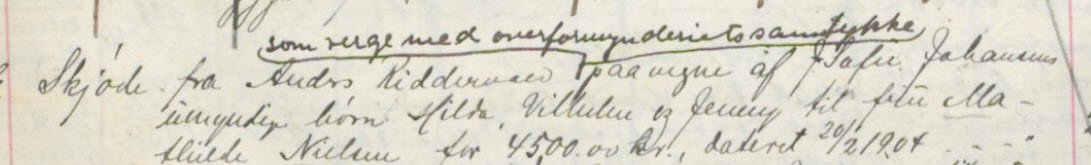 som verge med overformynderiets samtykke
Skjøde fra Andrs Riddervold paavegne af J Johansens
umyndige børn Hilda, Vilhelm og Jenny til fru Ma-
thilde Nielsen for 4500.00 kr., dateret 20/2 1904 - - - "